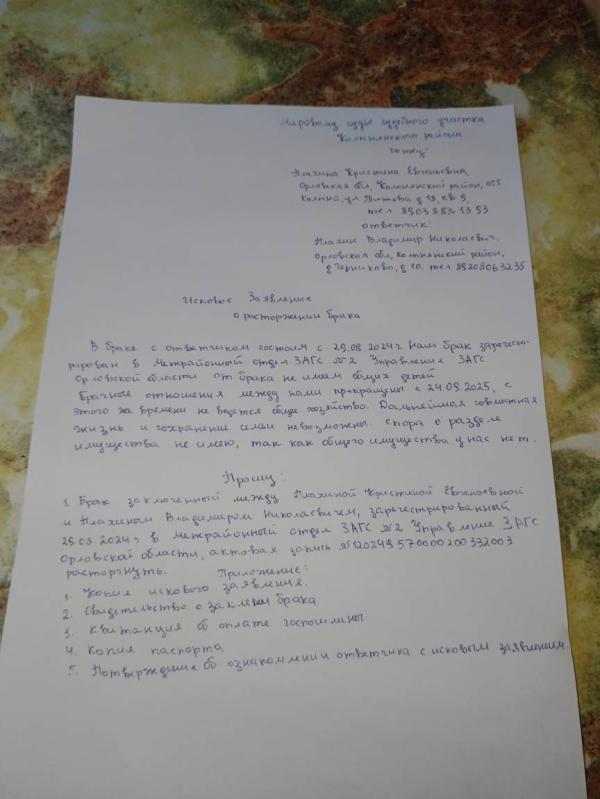 Мировому судье судебного участка
Колпнянского района
Истец:
Алахина Кристина Евгеньевна,
Орловская обл, Колпнянский район, пгт
Колпна, ул Титова д 19, кв 5,
тел 8903 883 13 93
ответчик:
Алахин Владимир Николаевич.
Орловская обл, колпнянский район,
д Черниково, д 10. тел 89208063235
Исковое Заявление
о расторжении брака
В браке с ответчиком состоим с 29.08 2024г Наш брак зарегест-
рирован в Межрайонный отдел ЗАГС №2 Управление ЗАГС
Орловской области от брака не имеем общих детей
Брачные отношения между нами прекращены с 24.09.2025, с
этого же времени не ведется общее хозяйство. Дальнейшая совместная
жизнь и сохранение семьи невозможны. спора о разделе
имущества не имею, так как общего имущества у нас нет.
Прошу:
1. Брак заключенный между Алахиной Кристиной Евгеньевной
и Алахиным Владимиром Николаевичем, зарегистрированный
29.08.2024г в межрайонный отдел ЗАГС №2 Управление ЗАГС
Орловской области, актовая запись № 120249570000200332003
расторгнуть. Приложение:
1. Копия искового заявления.
2. Свидетельство о заключении брака
3. квитанция об оплате госпошлины
4. Копия паспорта
5. Потверждение об ознакомлении ответчика с исковым заявлением.